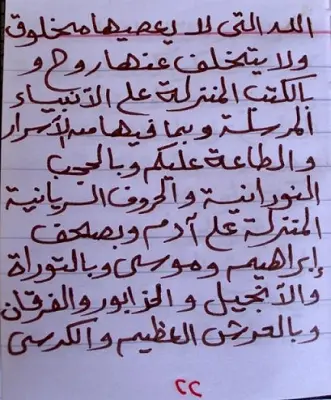 الله التى لا يعصيها مخلوق
ولا يتخلف عنها روح و
بالكتب المنزلة على الآنبياء
المرسلة وبما فيها من الآسرار
والطاعة عليكم وبالحجب
النورانية والحروف السريانية
المنزلة على آدم وبصحف
إبراهيم وموسى وبالتوراة
والآنجيل والزابور والفرقان
وبالعرش العظيم والكرسى
٢٢